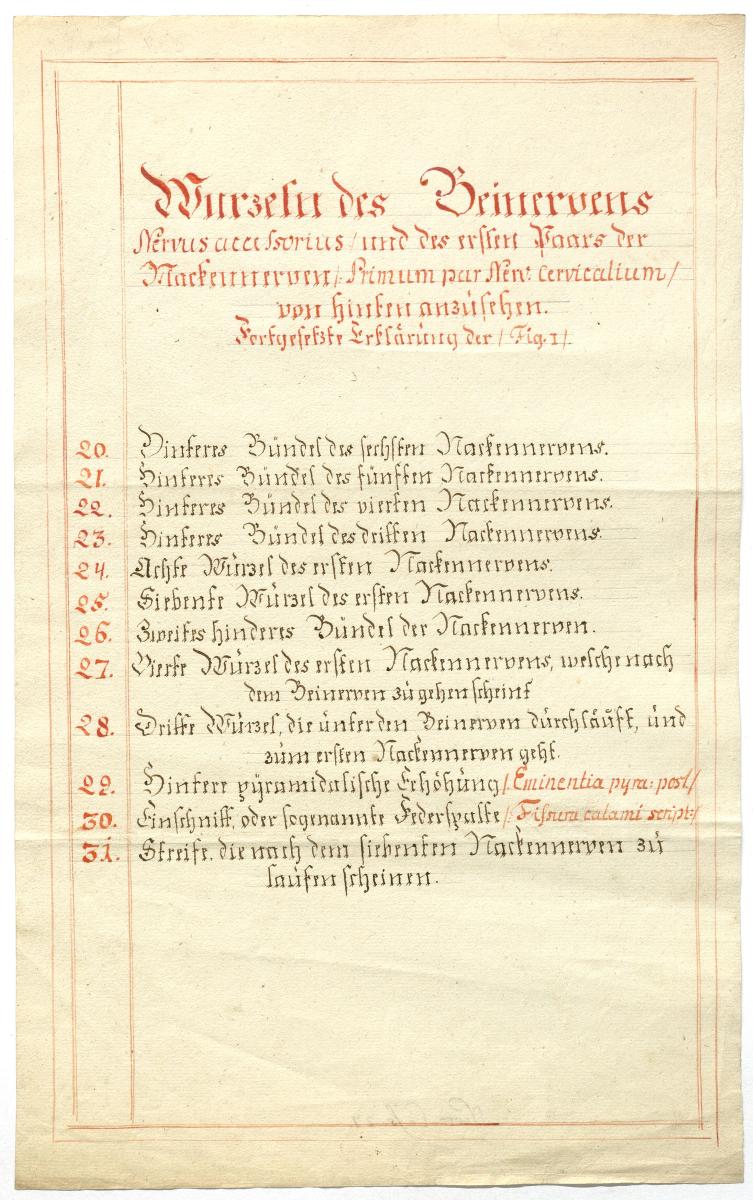 Wurzeln des Beinervens
Nervus accessorius / und des ersten Paars der
Nackennerven /: Primum par Nerv: Cervicalium /
von hinten anzusehen.
Fortgesetzte Erklärung der / Fig. 1 /.
20. Hinteres Bündel des sechsten Nackennervens.
21. Hinteres Bündel des fünften Nackennervens.
22. Hinteres Bündel des vierten Nackennervens.
23. Hinteres Bündel des dritten Nackennervens.
24. Achte Würzel des ersten Nackennervens.
25. Siebente Würzel des ersten Nackennervens.
26. Zweites hinderes Bündel der Nackennerven.
27. Vierte Würzel des ersten Nackennervens, welche nach
dem Beinerven zü gehen scheint
28. Dritte Würzel, die ünter den Beinerven dürchläüft, ünd
züm ersten Nackennerven geht.
29. Hintere pÿramidalische Erhöhüng /: Eminentia pyra: post /
30. Einschnitt, oder sogenannte Federspalte /: Fissura calami script: /
31. Streife, die nach dem siebenten Nackennerven zü
laüfen scheinen.